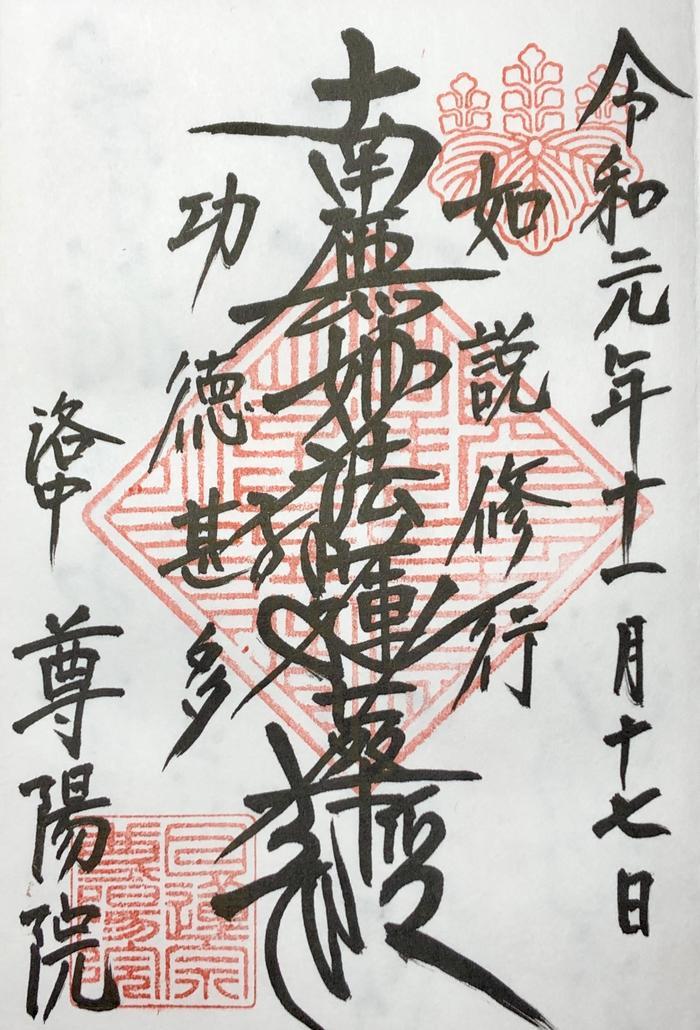 令和元年十一月十七日
如説修行
南無妙法蓮華経
功徳甚多
洛中 尊陽院
日蓮宗
尊陽院